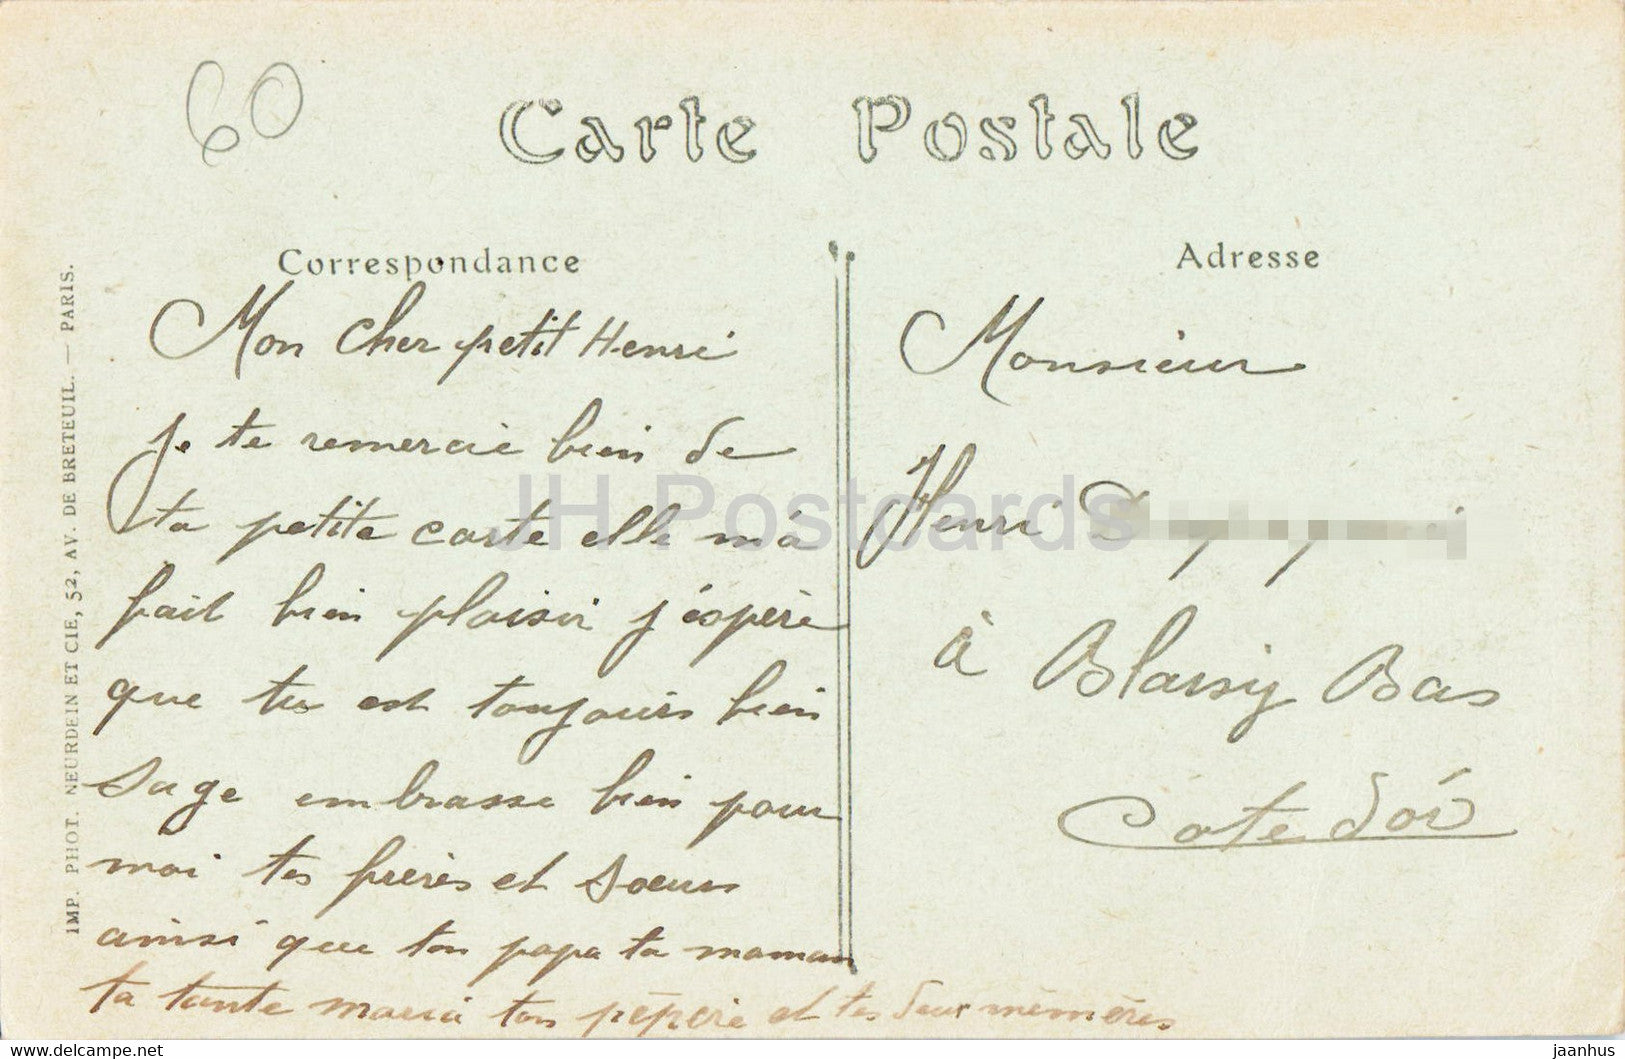 60
Carte Postale
Correspondance
Adresse
Mon cher petit Henri
je te remercie bien de
ta petite carte elle m'a
fait bien plaisir j'éspère
que tu est toujours bien
sage embrasse bien pour
moi tes frères et soeurs
ainsi que ton papa ta maman
ta tante maria ton pépère et tes deux mémères
Monsieur
Henri
à Blaisy Bas
Cote d'or
IMP. PHOT. NEURDEIN ET CIE, 52, AV. DE BRETEUIL. — PARIS.
JH Postcards
delcampe.net
jaanhus